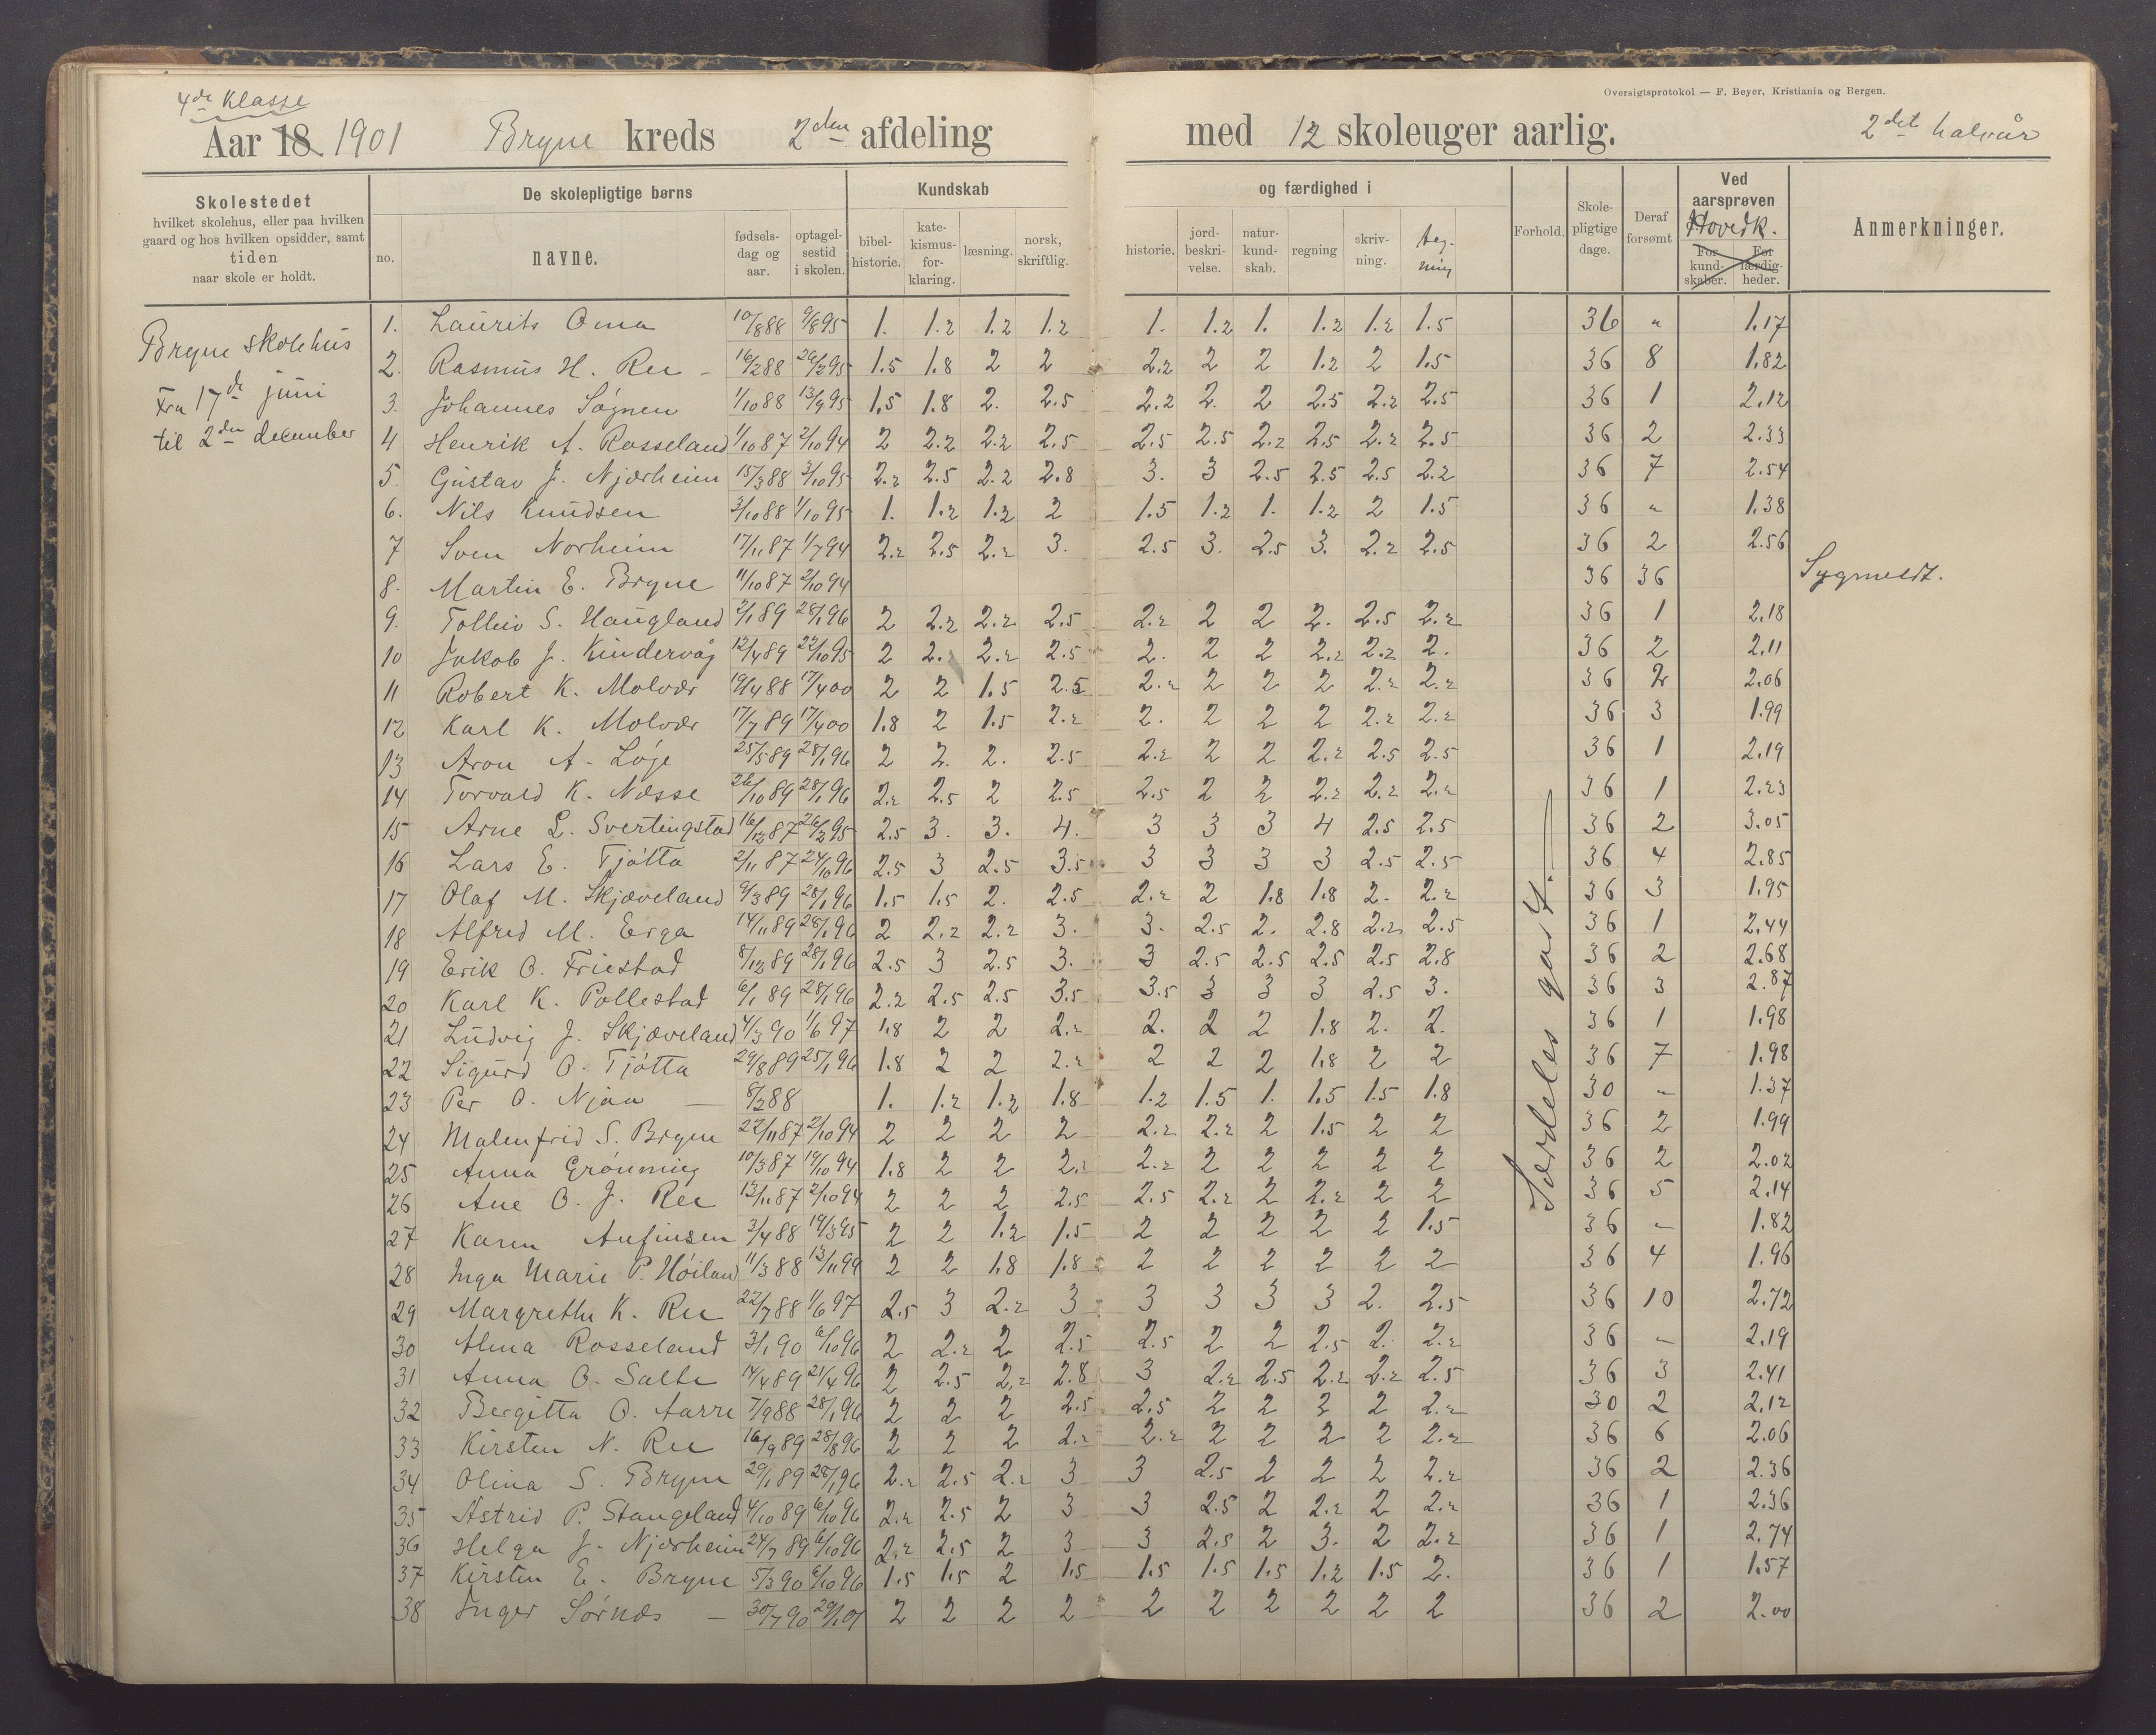 Oversigtsprotokol — F. Beyer, Kristiania og Bergen.
4de Klasse
Aar 18 1901 Bryne kreds 2den afdeling med 12 skoleuger aarlig. 2det halvår
Skolestedet
hvilket skolehus, eller paa hvilken
gaard og hos hvilken opsidder, samt
tiden
naar skole er holdt.
De skolepligtige børns
no. navne. fødsels-dag og aar. optagel-sestid i skolen.
Kundskab og færdighed i
bibel-historie. kate-kismus-for-klaring. læsning. norsk, skriftlig. historie. jord-beskri-velse. natur-kund-skab. regning skriv-ning. teg-ning
Forhold. Skole-pligtige dage. Deraf forsømt
Ved aarsprøven
Hovedk.
For kund-skaber. For færdig-heder.
Anmerkninger.
Bryne skolehus
Fra 17de juni
til 2den december
Særdeles godt.
1. Laurits Oma 10/8 88 9/8 95 1. 1.2 1.2 1.2 1. 1.2 1. 1.2 1.2 1.5 36 " 1.17
2. Rasmus H. Ree - 16/2 88 26/2 95 1.5 1.8 2 2 2.2 2 2 1.2 2 1.5 36 8 1.82
3. Johannes Søgnen 1/10 88 13/9 95 1.5 1.8 2. 2.5 2.2 2. 2 2.5 2.2 2.5 36 1 2.12
4 Henrik A. Rosseland 1/10 87 2/10 94 2 2.2 2.2 2.5 2.5 2.5 2.2 2.5 2.2 2.5 36 2 2.33
5. Gustav J. Njærheim 15/3 88 3/10 95 2.2 2.5 2.2 2.8 3. 3 2.5 2.5 2.5 2.2 36 7 2.54
6. Nils Knudsen 3/10 88 1/10 95 1. 1.2 1.2 2 1.5 1.2 1. 1.2 2 1.5 36 " 1.38
7 Sven Norheim 17/11 87 1/7 94 2.2 2.5 2.2 3. 2.5 3. 2.5 3. 2.2 2.5 36 2 2.56
8. Martin E. Bryne 11/10 87 2/10 94 36 36 Sygmeldt.
9. Tolleiv S. Haugland 2/1 89 28/1 96 2 2.2 2.2 2.5 2.2 2 2 2. 2.5 2.2 36 1 2.18
10 Jakob J. Kindervåg 12/4 89 22/10 95 2 2.2 2.2 2.5 2. 2 2 2.2 2.2 2. 36 2 2.11
11 Robert K. Molvær 19/4 88 17/4 00 2 2 1.5 2.5 2.2 2 2 2 2.2 2.2 36 2 2.06
12 Karl K. Molvær 17/7 89 17/4 00 1.8 2 1.5 2.2 2. 2 2 2 2.2 2.2 36 3 1.99
13 Aron A. Løge 25/5 89 28/1 96 2 2. 2. 2.5 2.2 2 2 2.2 2.5 2.5 36 1 2.19
14 Torvald K. Næsse 26/10 89 28/1 96 2.2 2.5 2 2.5 2.5 2 2 2.2 2.2 2.2 36 1 2.23
15 Arne L. Svertingstad 16/12 87 26/2 95 2.5 3. 3. 4. 3 3 3 4 2.5 2.5 36 2 3.05
16 Lars E. Tjøtta 2/11 87 24/10 96 2.5 3 2.5 3.5 3 3 3 3 2.5 2.5 36 4 2.85
17 Olaf M. Skjæveland 9/3 89 28/1 96 1.5 1.5 2. 2.5 2.2 2 1.8 1.8 2. 2.2 36 3 1.95
18 Alfred M. Erga 14/11 89 28/1 96 2 2.2 2.2 3. 3. 2.5 2. 2.8 2.2 2.5 36 1 2.44
19 Erik O. Friestad 8/12 89 28/1 96 2.5 3 2.5 3. 3 2.5 2.5 2.5 2.5 2.8 36 2 2.68
20 Karl K. Pollestad 6/1 89 28/1 96 2.2 2.5 2.5 3.5 3.5 3 3 3 2.5 3. 36 3 2.87
21 Ludvig J. Skjæveland 4/3 90 1/6 97 1.8 2 2 2.2 2. 2 2 1.8 2. 2. 36 1 1.98
22 Sigurd O. Tjøtta 29/8 89 25/1 96 1.8 2 2 2.2 2 2 2 1.8 2 2 36 7 1.98
23 Per O. Njaa — 8/2 88 1. 1.2 1.2 1.8 1.2 1.5 1. 1.5 1.5 1.8 30 - 1.37
24 Malenfrid S. Bryne 22/11 87 2/10 94 2 2 2 2 2.2 2.2 2 1.5 2 2 36 2 1.99
25 Anna Grønning 10/3 87 19/10 94 1.8 2 2 2.2 2.2 2 2 2 2 2 36 2 2.02
26 Ane O. J. Ree 13/11 87 2/10 94 2 2 2 2.5 2.5 2.2 2 2.2 2 2 36 5 2.14
27 Karen Anfinsen 3/4 88 19/3 95 2 2 1.2 1.5 2 2 2 2 2 1.5 36 - 1.82
28 Inga Marie P. Høiland 11/3 88 13/11 99 2 2 1.8 1.8 2 2 2 2 2 2 36 4 1.96
29 Margrethe K. Ree 22/7 88 1/6 97 2.5 3 2.2 3 3 3 3 3 2. 2.5 36 10 2.72
30 Alma Rosseland 3/1 90 6/10 96 2 2.2 2 2.5 2.5 2 2 2.5 2. 2.2 36 - 2.19
31 Anna O. Salte 14/4 89 21/4 96 2 2.5 2.2 2.8 3 2.2 2.5 2.2 2.2 2.5 36 3 2.41
32 Bergitta O. Aarre 7/9 88 28/1 96 2 2 2 2.5 2.5 2 2 2 2 2.2 30 2 2.12
33 Kirsten N. Ree 16/9 89 28/8 96 2 2 2 2.2 2.2 2 2 2 2 2.2 36 6 2.06
34 Olina S. Bryne 29/1 89 28/1 96 2.2 2.5 2.2 3 3 2.5 2 2 2 2.2 36 2 2.36
35 Astrid P. Stangeland 4/10 89 6/10 96 2.2 2.5 2 3 3 2.5 2 2.2 2 2.2 36 1 2.36
36 Helga J. Njærheim 24/7 89 6/10 96 2.2 2.5 2 3 3 2.5 2 3. 2 2.2 36 1 2.74
37 Kirsten E. Bryne 5/3 90 6/10 96 1.5 1.5 2 1.5 1.5 1.5 1.5 1.2 1.5 2. 36 1 1.57
38 Inger Sørnæs — 30/7 90 29/1 01 2 2 2 2 2 2 2 2 2 2 36 2 2.00